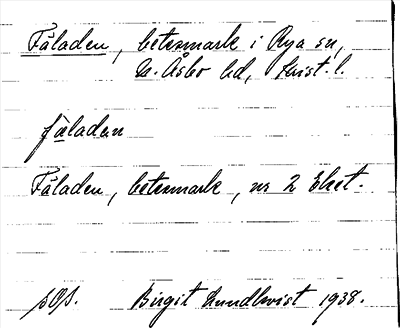 Fäladen, betesmark i Rya sn,
N. Åsbo hd, Krist. l.
fäladen
Fäladen, betesmark, nr 2 Ehet.
pOs.
Birgit Lundkvist 1938.